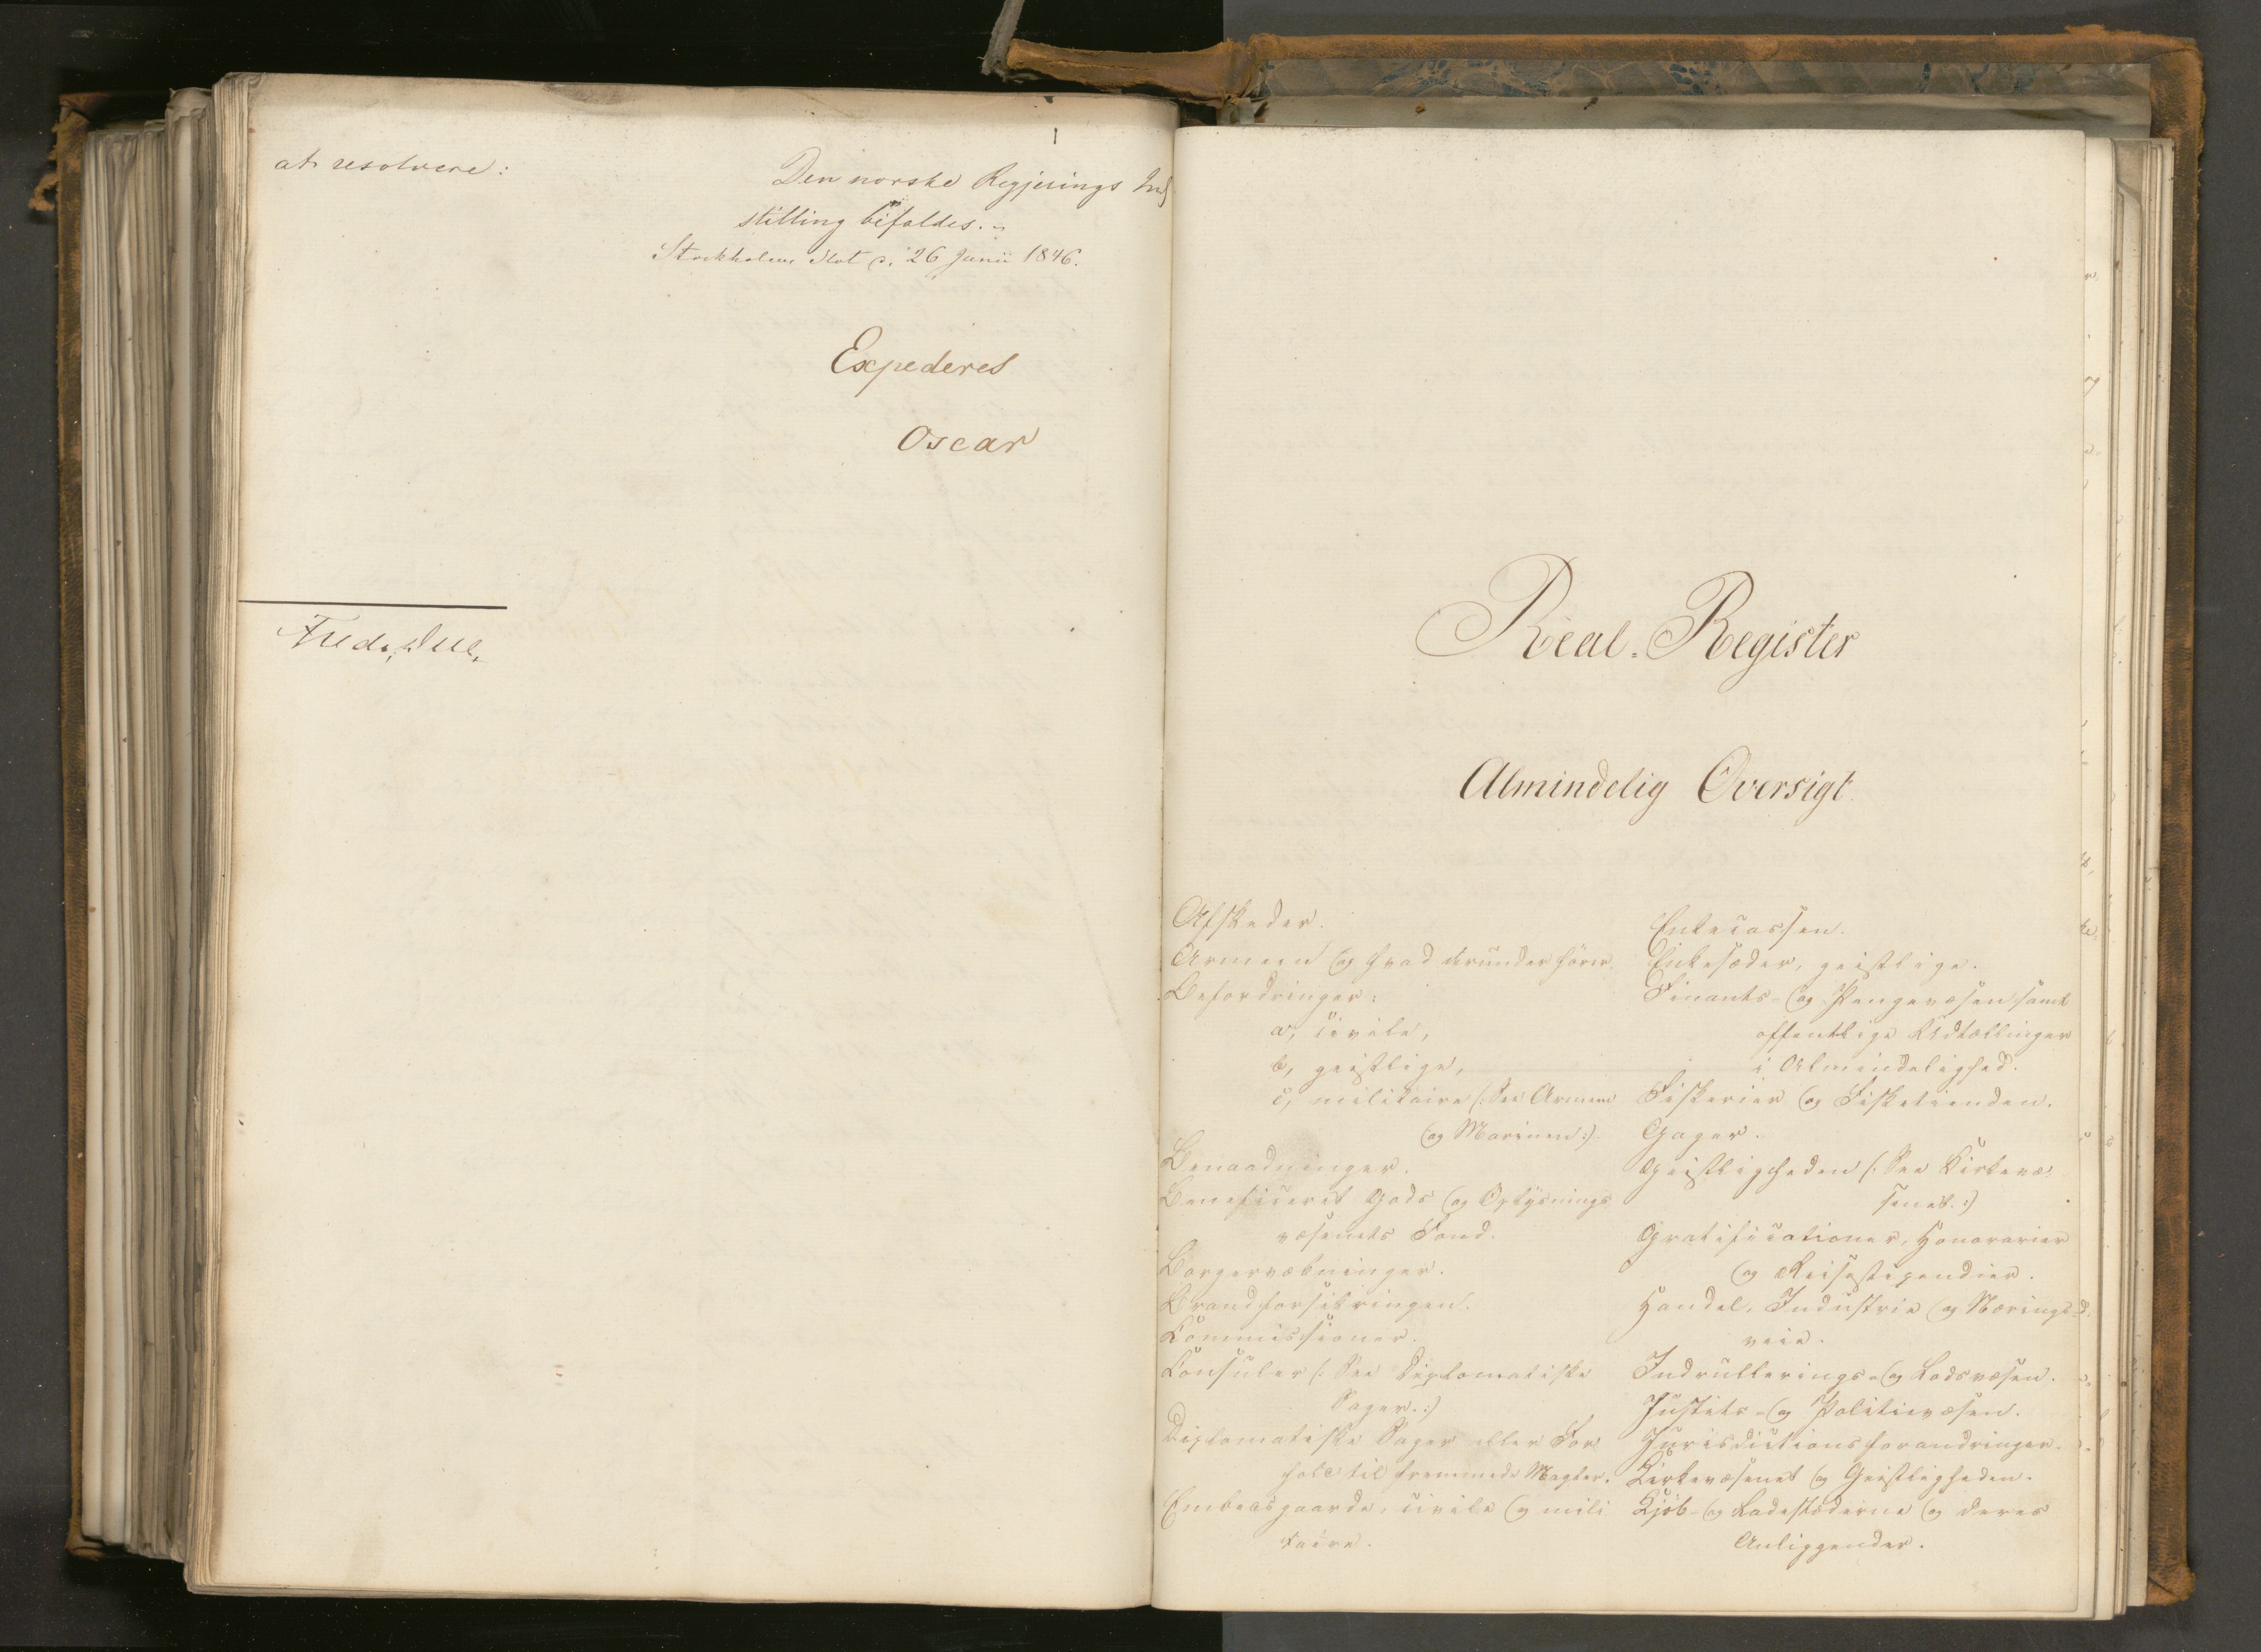 at resolvere:
Den norske Regjerings Ind
stilling bifaldes.
Stockholms Slot d. 26 Junii 1846.
Expederes
Oscar
Fred. Due.
Real-Register
Almindelig Oversigt.
Afskeder.
Armeen og hvad derunder hører.
Befordringer:
a, civile,
b, geistlige,
c, militaire (: See Armeen
og Marinen :).
Benaadninger.
Beneficeret Gods og Oplysnings
væsenets Fond.
Borgervæbninger.
Brandforsikringen.
Commissioner.
Consuler (: See Diplomatiske
Sager. :)
Diplomatiske Sager eller For
hold til fremmede Magter.
Embedsgaarde, civile og mili
taire.
Enkecassen.
Enkesæder, geistlige.
Finants- og Pengevæsen samt
offentlige Udtællinger
i Almindelighed.
Fiskerier og Fisketienden.
Gager.
Geistligheden (: See Kirkevæ
senet. :)
Gratificationer, Honorarier
og Reisestipendier.
Handel, Industrie og Nærings-
veie.
Indrullerings- og Lodsvæsen.
Justits- og Politievæsen.
Jurisdictionsforandringer.
Kirkevæsenet og Geistligheden.
Kjøb- og Ladestæderne og deres
Anliggender.